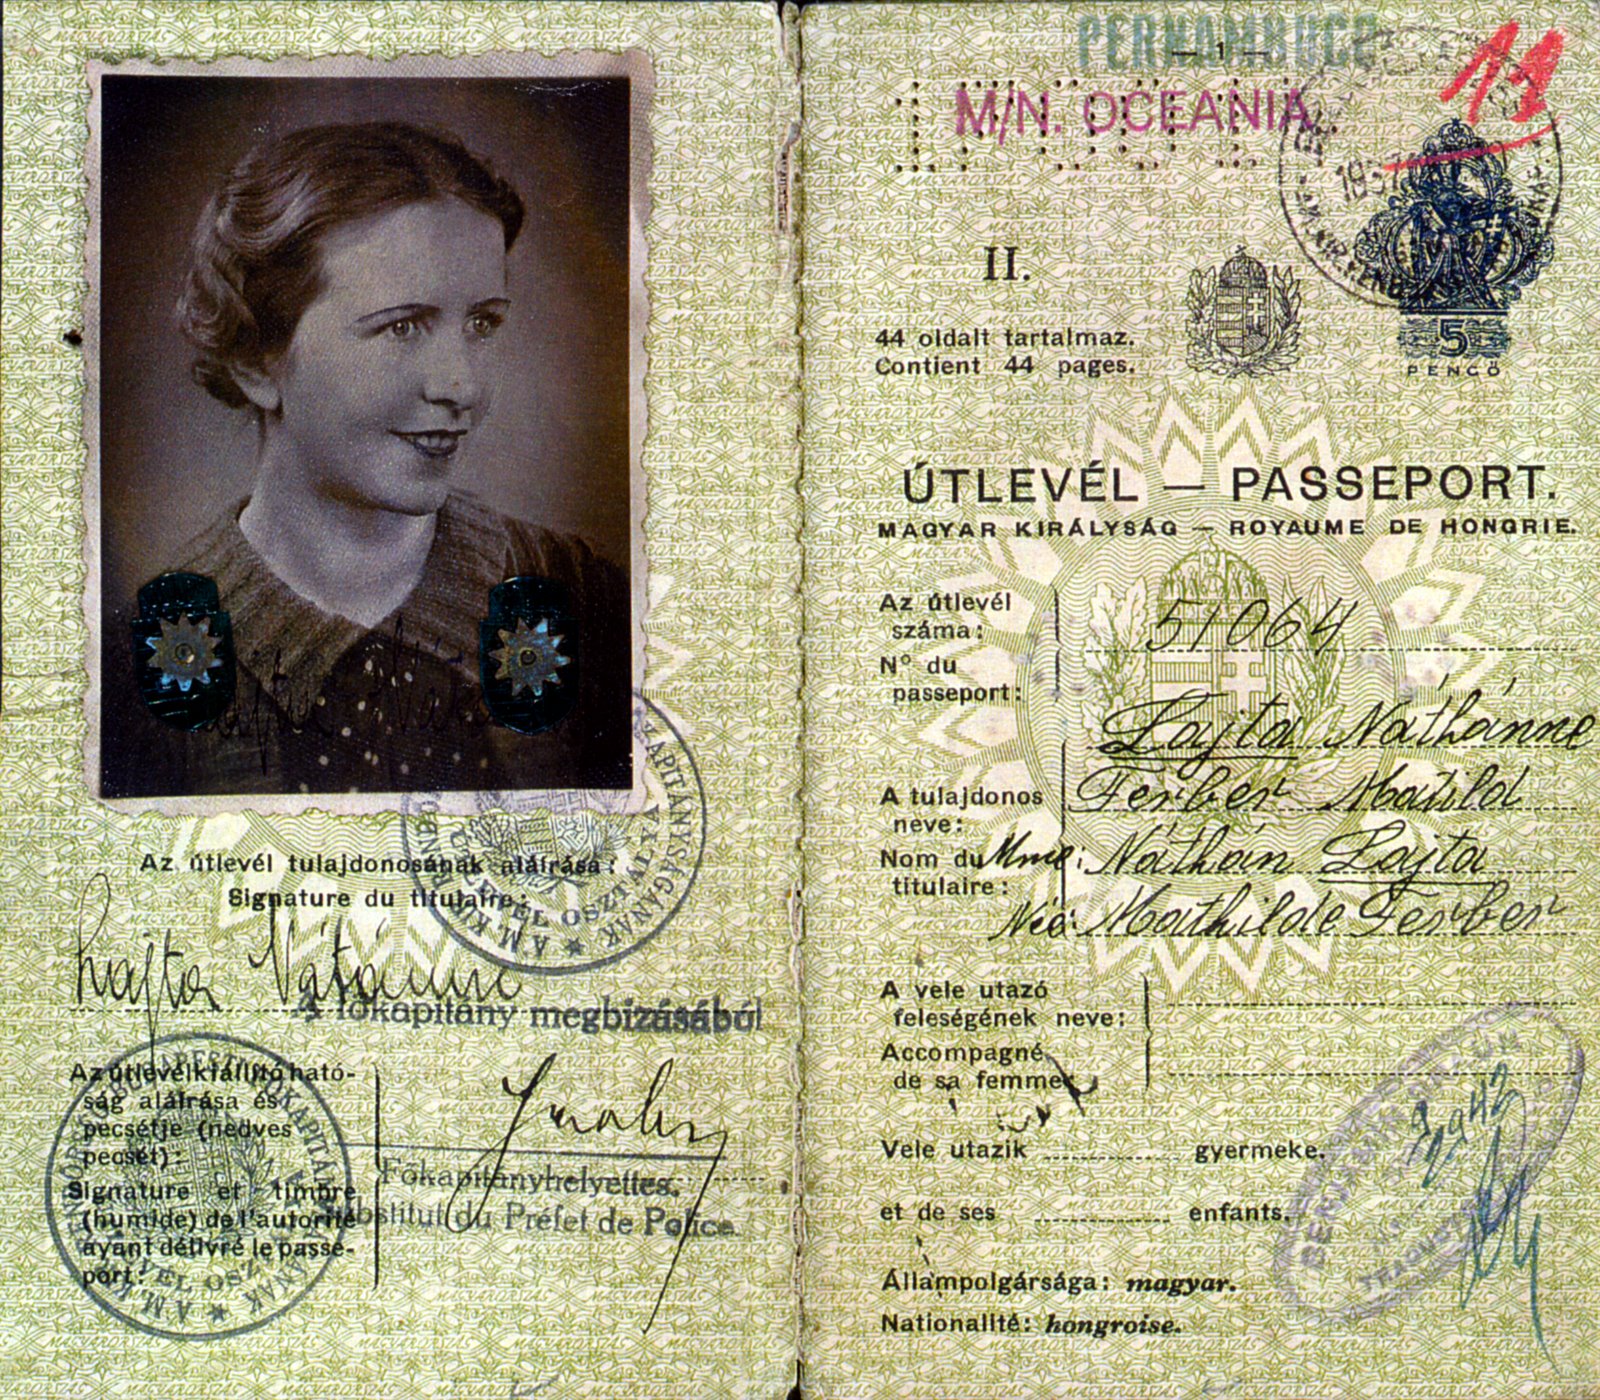 Az útlevél tulajdonosának aláírása:
Signature du titulaire:
Lajta Nátánné
A főkapitány megbizásából
Az útlevélkiállító ható-
ság aláírása és
pecsétje (nedves
pecsét):
Signature et timbre
(humide) de l'autorité
ayant délivré le passe-
port:
Főkapitányhelyettes.
Substitut du Préfet de Police.
PERNAMBUCO
— 1 —
M/N. OCEANIA
II.
44 oldalt tartalmaz.
Contient 44 pages.
5
PENGŐ
ÚTLEVÉL — PASSEPORT.
MAGYAR KIRÁLYSÁG — ROYAUME DE HONGRIE.
Az útlevél
száma:
51064
N° du
passeport:
Lajta Náthánné
A tulajdonos
neve:
Ferber Matild
Nom du
titulaire:
Mme: Náthán Lajta
Née: Mathilde Ferber
A vele utazó
feleségének neve:
Accompagné
de sa femme
Vele utazik gyermeke.
et de ses enfants.
Állampolgársága: magyar.
Nationalité: hongroise.